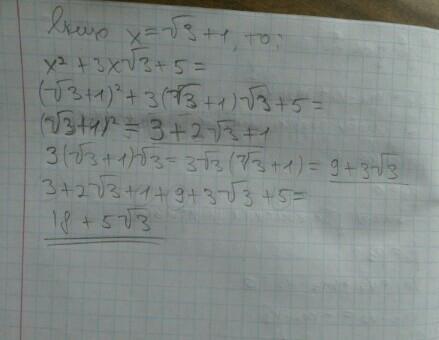 Якщо x = √3 + 1, то:
x² + 3x√3 + 5 =
(√3+1)² + 3(√3+1)√3 + 5 =
(√3+1)² = 3 + 2√3 + 1
3(√3+1)√3 = 3√3(√3+1) = 9 + 3√3
3 + 2√3 + 1 + 9 + 3√3 + 5 =
18 + 5√3